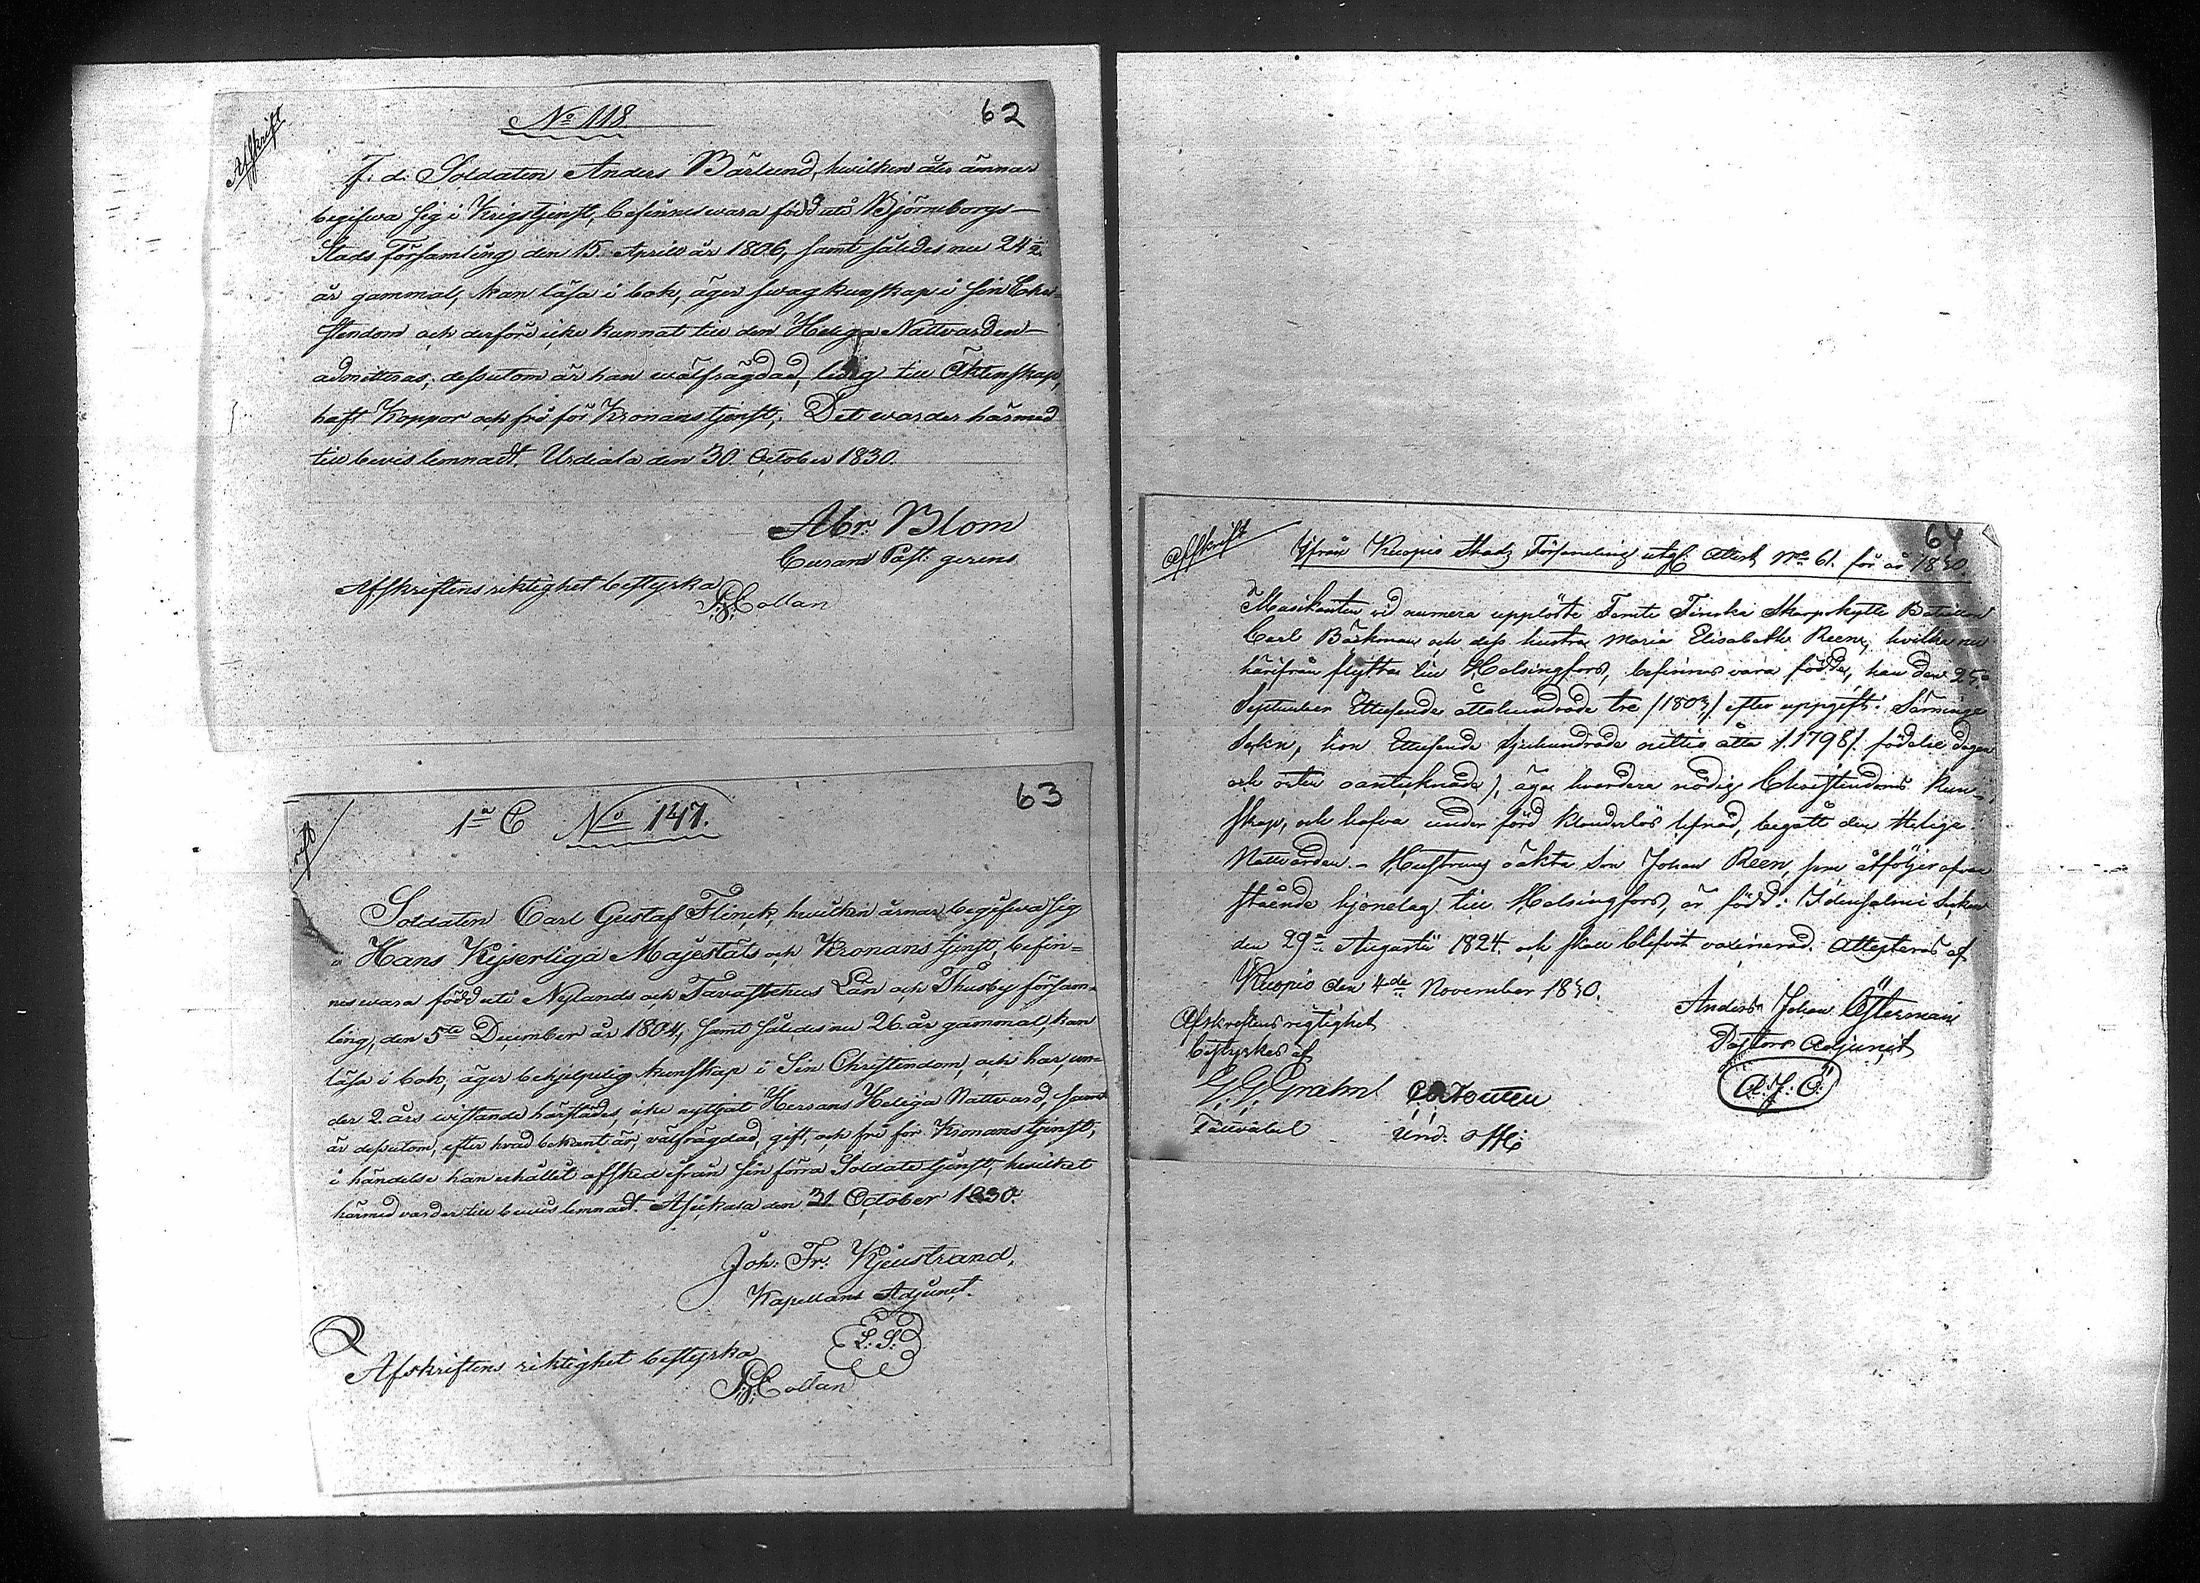 Affskrift
No 118
62
F. d. Soldaten Anders Bärlund, hwilken åter ämnar
begifwa sig i Krigstjenst, befinnes wara född uti Björneborgs
Stads Församling den 15. Aprill år 1806, samt således nu 24 1/2
år gammal, kan läsa i bok, äger swag kunskap i sin Chri-
stendom och derföre icke kunnat till den Heliga Nattvarden
admitteras; dessutom är han wälfrägdad, ledig till Äktenskap,
haft Koppor och fri för Kronans tjenst; Det warder härmed
till bewis lemnadt. Urdiala den 30. October 1830.
Abr. Blom
Curam Past. gerens
Afskriftens riktighet bestyrka
Collan
63
1a C No 147.
Soldaten Carl Gustaf Flinck, hwilken ärnar begifwa sig
i Hans Kejserliga Majestäts och Kronans tjenst, befin-
nes wara född uti Nylands och Tavastehus Län och Thusby försam-
ling, den 5te December år 1804, samt således nu 26. år gammal, kan
läsa i bok, äger behjelpelig kunskap i Sin Christendom, och har, un-
der 2. års wistande härstädes, icke nyttjat Herrans Heliga Nattvard, samt
är dessutom, efter hvad bekant är, välfrägdad, gift, och fri för Kronans tjenst,
i händelse han erhållit affsked ifrån sin förra Soldate tjenst, hwilket
härmed varder till bewis lemnadt. Asikkala den 31. October 1830.
Joh. Fr.
Kapellans Adjunct.
L. S.
Afskriftens riktighet bestyrka
Collan
64
Affskrift
Ifrån Kuopio Stads Församling utg. Attest No 61. för år 1830.
Musikanten vid numera upplöste Femte Finska Skarpskytte Bataillon
Carl Bäckman och dess hustru Maria Elisabeth Reen, hvilka nu
härifrån flytta till Helsingfors, befinnas vara födde, han den 25.
September Ettusende åttahundrade tre /1803/ efter uppgift i
Sokn, hon Ettusende sjuhundrade nittio åtta /:1798/. födelse dagen
och orten oantecknade), äga hvardera nödig Christendoms Kun-
skap, och hafva under förd klanderlös lefnad, begått den Heliga
Nattvarden. - Hustruns oäkta son Johan Reen, som åtföljer ofvan
stående hjonelag till Helsingfors, är född i Idensalmi Sokn
den 29de Augusti 1824 och skall blifvit vaxinerad. Attesteras af
Kuopio den 4de November 1830.
Anders Johan Österman
Pastors Adjunct
A. J. Ö.
Afskriftens rigtighet
bestyrkes af
G. G. Grahn
Fältväbel
Und. Off.